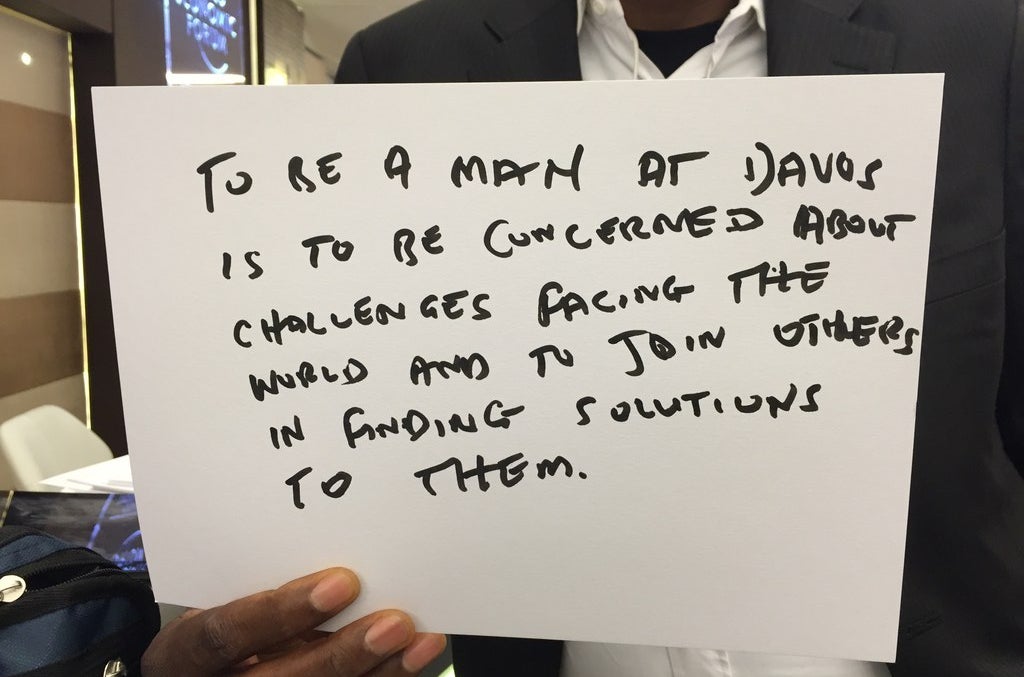 ECONOMIC
FORUM
TO BE A MAN AT DAVOS
IS TO BE CONCERNED ABOUT
CHALLENGES FACING THE
WORLD AND TO JOIN OTHERS
IN FINDING SOLUTIONS
TO THEM.